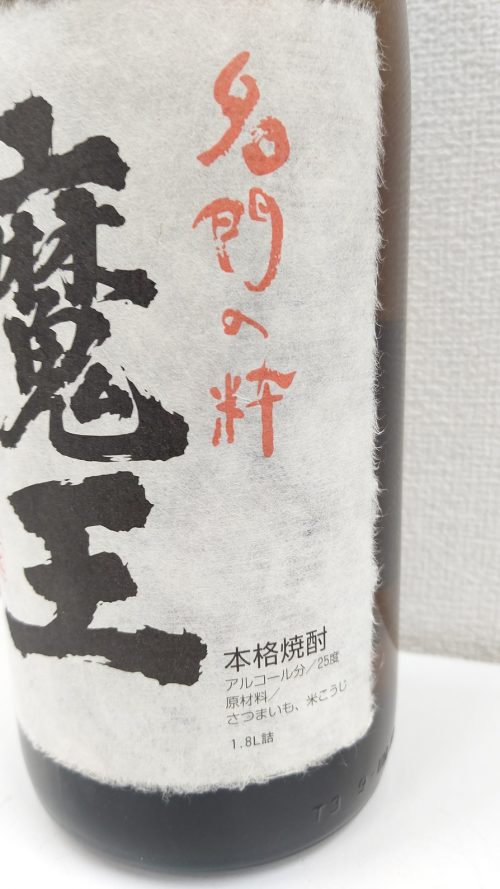 名門の粋
魔王
本格焼酎
アルコール分／25度
原材料／
さつまいも、米こうじ
1.8L詰